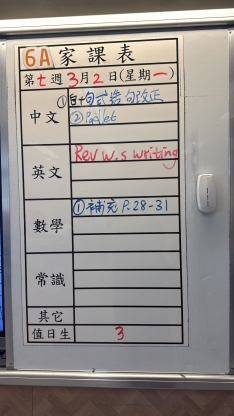 6A 家課表
第七週3月2日(星期一)
中文
①自+句式造句改正
②Padlet
英文
Rev w.s writing
數學
①補充 P.28-31
常識
其它
值日生
3